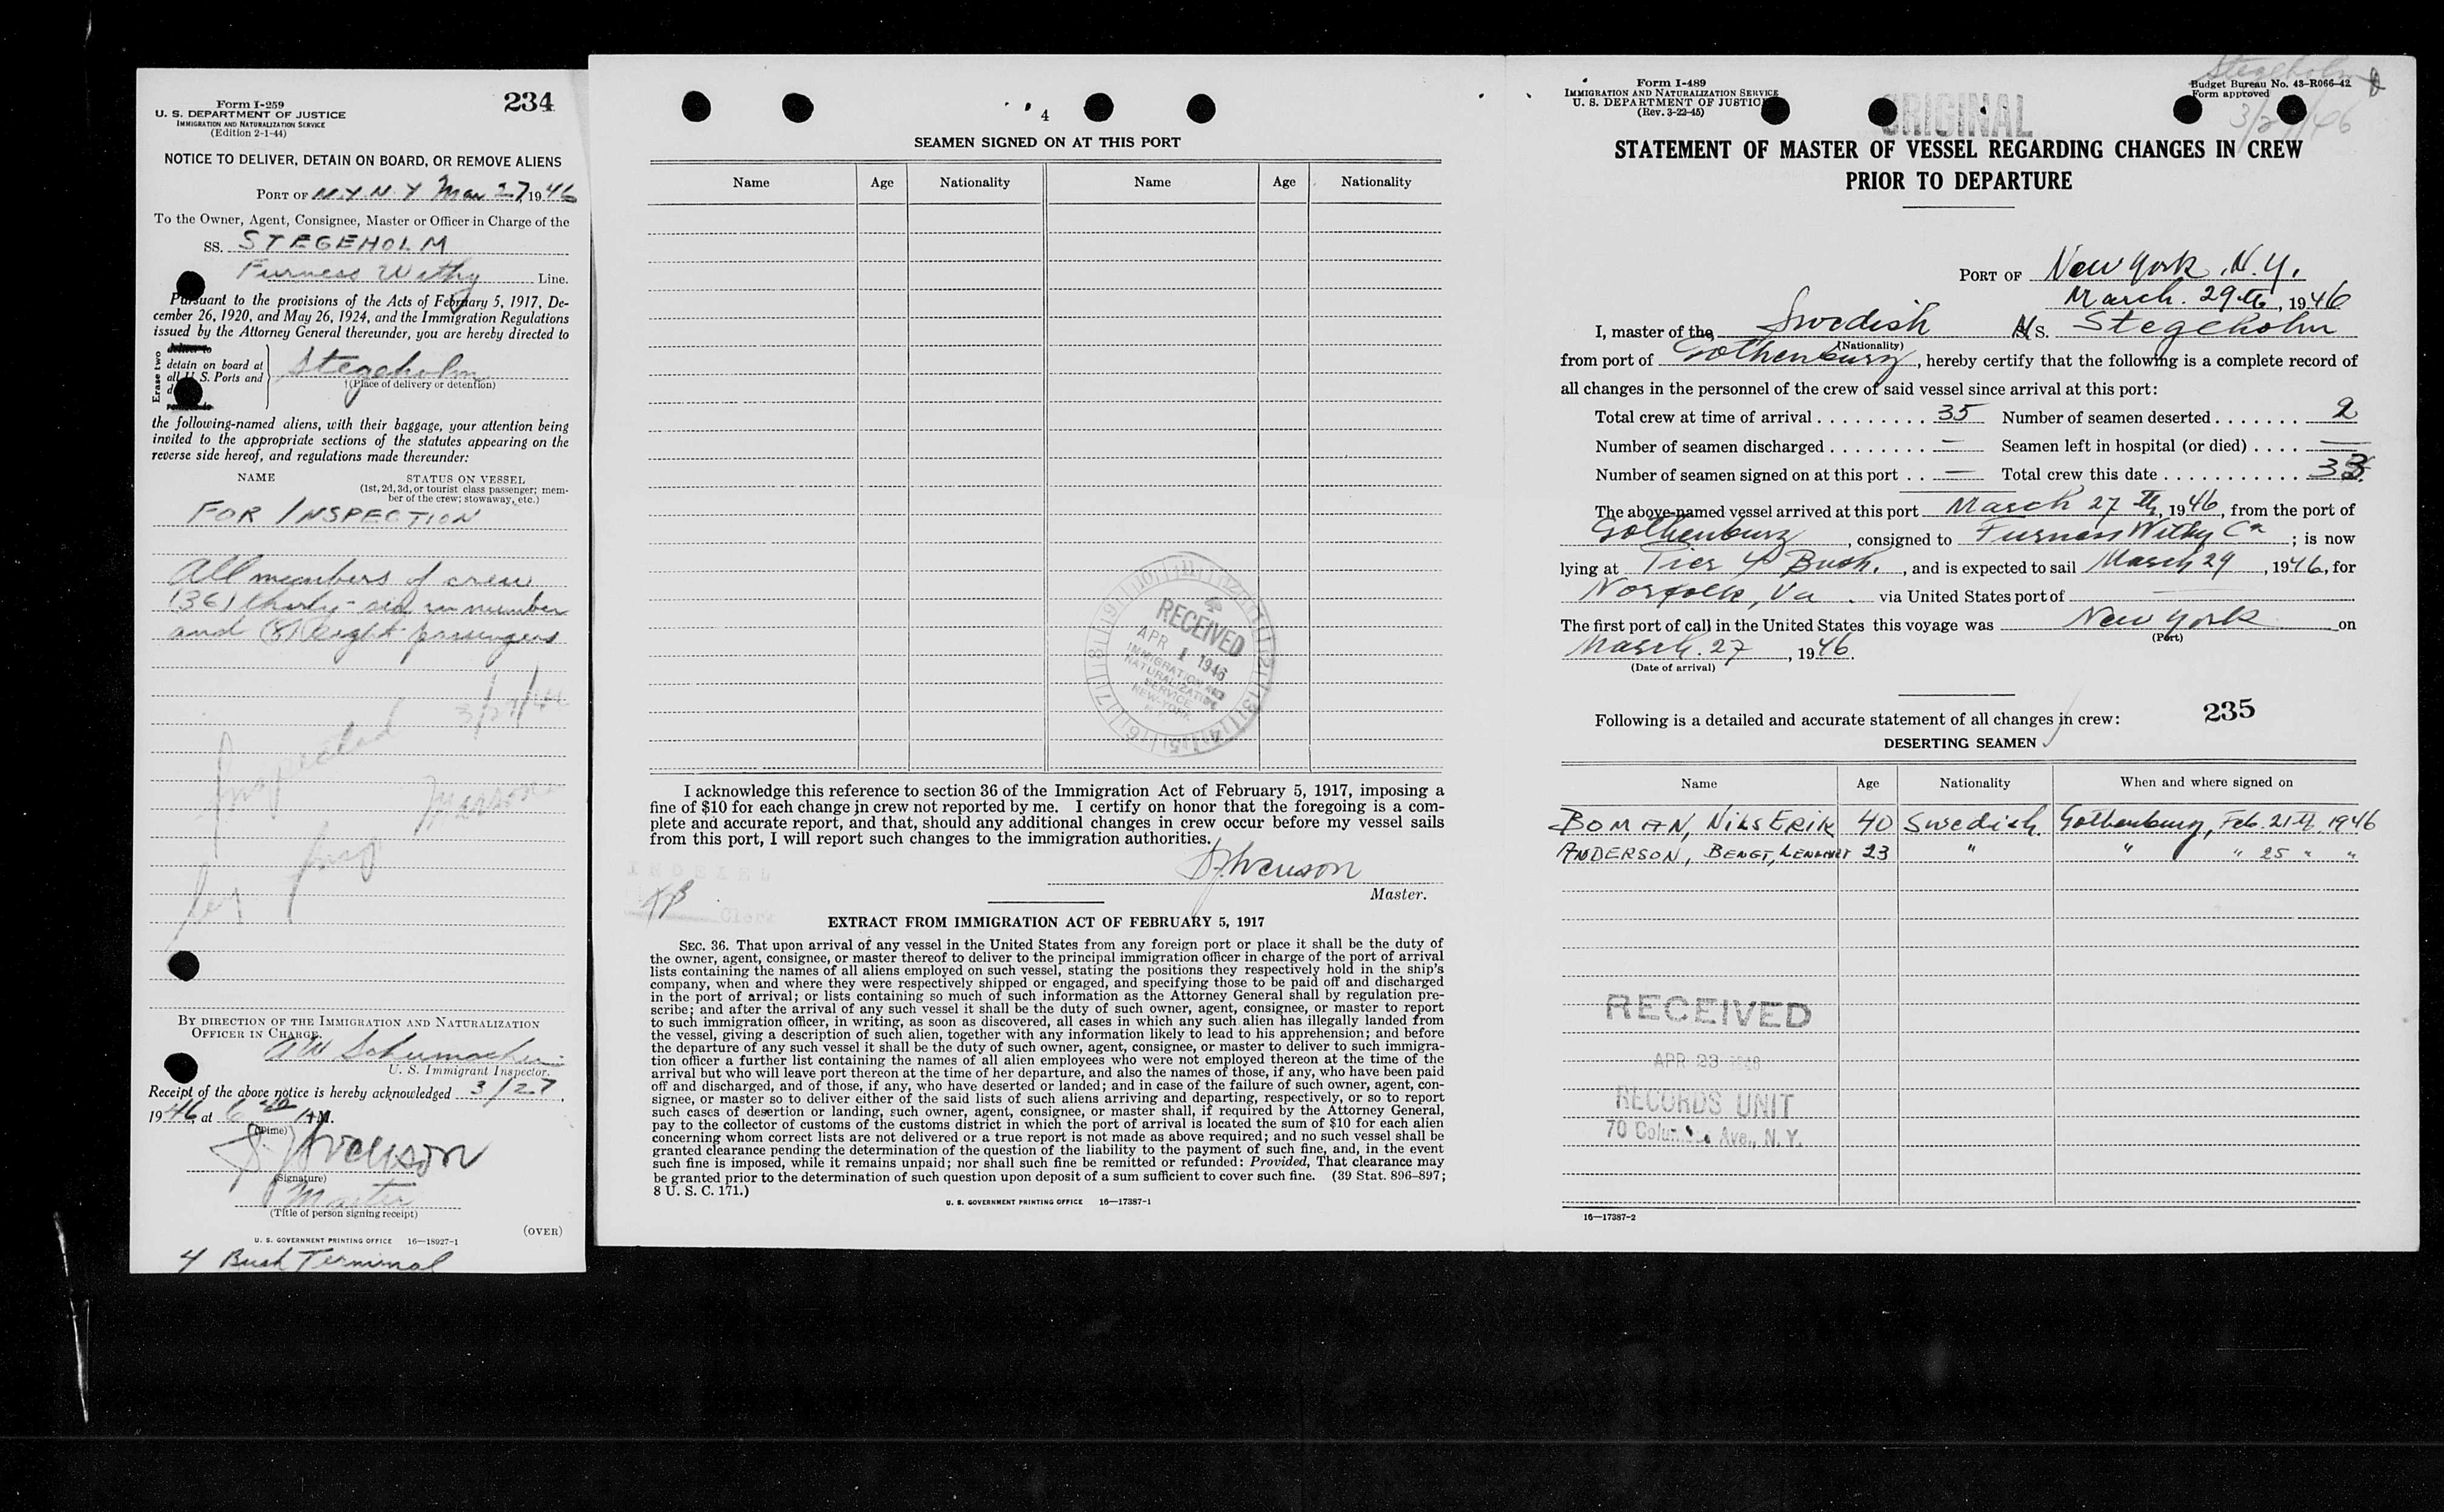 234
Form I-259
U. S. DEPARTMENT OF JUSTICE
IMMIGRATION AND NATURALIZATION SERVICE
(Edition 2-1-44)
NOTICE TO DELIVER, DETAIN ON BOARD, OR REMOVE ALIENS
PORT OF N.Y. N.Y Mar 27, 1946
To the Owner, Agent, Consignee, Master or Officer in Charge of the
SS. STEGEHOLM
Furness Withy Line.
Pursuant to the provisions of the Acts of February 5, 1917, De-
cember 26, 1920, and May 26, 1924, and the Immigration Regulations
issued by the Attorney General thereunder, you are hereby directed to
Erase two
deliver to
detain on board at
all U. S. Ports and
Stegeholm
†(Place of delivery or detention)
the following-named aliens, with their baggage, your attention being
invited to the appropriate sections of the statutes appearing on the
reverse side hereof, and regulations made thereunder:
NAME STATUS ON VESSEL
(1st, 2d, 3d, or tourist class passenger; mem-
ber of the crew; stowaway, etc.)
FOR INSPECTION
All members of crew
(36) thirty-six in number
and (8) eight passengers
3/27/46
Inspected
by
BY DIRECTION OF THE IMMIGRATION AND NATURALIZATION
OFFICER IN CHARGE.
AW Schumacher
U. S. Immigrant Inspector.
Receipt of the above notice is hereby acknowledged 3/27,
1946, at 6 40 AM.
(Time)
S. J. Svenson
(Signature)
Master
(Title of person signing receipt)
(OVER)
U. S. GOVERNMENT PRINTING OFFICE 16—18927-1
4 Bush Terminal
4
SEAMEN SIGNED ON AT THIS PORT
Name Age Nationality Name Age Nationality
RECEIVED
APR 1 1946
IMMIGRATION AND
NATURALIZATION
SERVICE
NEW YORK
I acknowledge this reference to section 36 of the Immigration Act of February 5, 1917, imposing a
fine of $10 for each change in crew not reported by me. I certify on honor that the foregoing is a com-
plete and accurate report, and that, should any additional changes in crew occur before my vessel sails
from this port, I will report such changes to the immigration authorities.
S J Svenson
Master.
INDEXED
Clerk
EXTRACT FROM IMMIGRATION ACT OF FEBRUARY 5, 1917
SEC. 36. That upon arrival of any vessel in the United States from any foreign port or place it shall be the duty of
the owner, agent, consignee, or master thereof to deliver to the principal immigration officer in charge of the port of arrival
lists containing the names of all aliens employed on such vessel, stating the positions they respectively hold in the ship's
company, when and where they were respectively shipped or engaged, and specifying those to be paid off and discharged
in the port of arrival; or lists containing so much of such information as the Attorney General shall by regulation pre-
scribe; and after the arrival of any such vessel it shall be the duty of such owner, agent, consignee, or master to report
to such immigration officer, in writing, as soon as discovered, all cases in which any such alien has illegally landed from
the vessel, giving a description of such alien, together with any information likely to lead to his apprehension; and before
the departure of any such vessel it shall be the duty of such owner, agent, consignee, or master to deliver to such immigra-
tion officer a further list containing the names of all alien employees who were not employed thereon at the time of the
arrival but who will leave port thereon at the time of her departure, and also the names of those, if any, who have been paid
off and discharged, and of those, if any, who have deserted or landed; and in case of the failure of such owner, agent, con-
signee, or master so to deliver either of the said lists of such aliens arriving and departing, respectively, or so to report
such cases of desertion or landing, such owner, agent, consignee, or master shall, if required by the Attorney General,
pay to the collector of customs of the customs district in which the port of arrival is located the sum of $10 for each alien
concerning whom correct lists are not delivered or a true report is not made as above required; and no such vessel shall be
granted clearance pending the determination of the question of the liability to the payment of such fine, and, in the event
such fine is imposed, while it remains unpaid; nor shall such fine be remitted or refunded: Provided, That clearance may
be granted prior to the determination of such question upon deposit of a sum sufficient to cover such fine. (39 Stat. 896–897;
8 U. S. C. 171.)
U. S. GOVERNMENT PRINTING OFFICE 16—17387-1
Stegeholm
3/27/46
Form I-489
IMMIGRATION AND NATURALIZATION SERVICE
U. S. DEPARTMENT OF JUSTICE
(Rev. 3-22-45)
ORIGINAL
Budget Bureau No. 43-R066-42
Form approved
STATEMENT OF MASTER OF VESSEL REGARDING CHANGES IN CREW
PRIOR TO DEPARTURE
PORT OF New York, N.Y.
March. 29th, 1946
I, master of the Swedish M S. Stegeholm
(Nationality)
from port of Gothenburg, hereby certify that the following is a complete record of
all changes in the personnel of the crew of said vessel since arrival at this port:
Total crew at time of arrival . . . . . . . . . 35 Number of seamen deserted . . . . . . . 2
Number of seamen discharged . . . . . . . . — Seamen left in hospital (or died) . . . . —
Number of seamen signed on at this port . . — Total crew this date . . . . . . . . . . . . 33
The above-named vessel arrived at this port March 27th, 1946, from the port of
Gothenburg, consigned to Furness Withy Co; is now
lying at Pier 4 Bush., and is expected to sail March 29, 1946, for
Norfolk, Va. via United States port of —
The first port of call in the United States this voyage was New York on
(Port)
March. 27, 1946.
(Date of arrival)
235
Following is a detailed and accurate statement of all changes in crew:
DESERTING SEAMEN
Name Age Nationality When and where signed on
BOMAN, NILS ERIK 40 Swedish. Gothenburg, Feb. 21th 1946
ANDERSON, BENGT, LENNART 23 " " " 25 " "
RECEIVED
APR 23 1946
RECORDS UNIT
70 Columbus Ave., N. Y.
16—17387-2